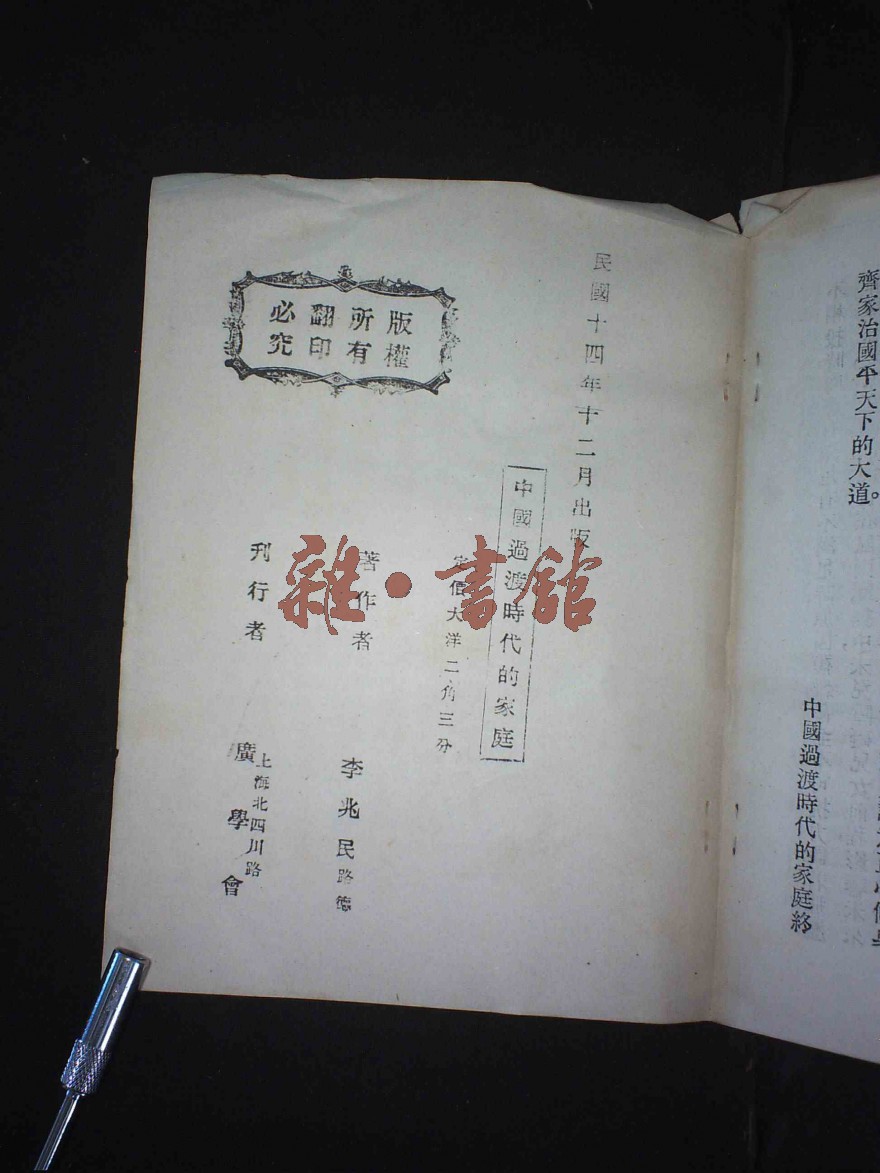 齊家治國平天下的大道。
中國過渡時代的家庭終
民國十四年十二月出版
中國過渡時代的家庭
定價大洋二角三分
著作者 李兆民路德
刊行者 上海北四川路 廣學會
版權
所有
翻印
必究
雜·書館